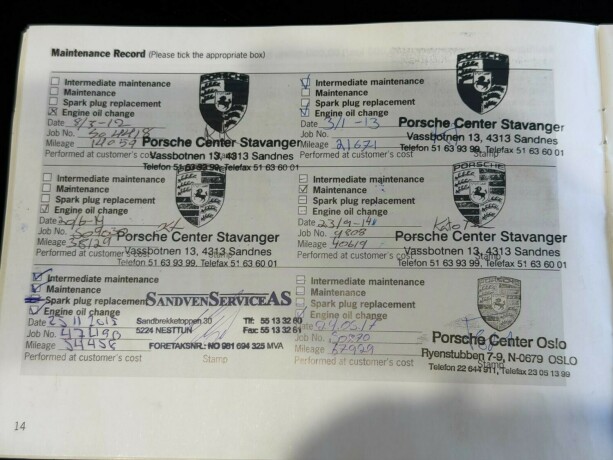 Maintenance Record (Please tick the appropriate box)
Intermediate maintenance
Maintenance
Spark plug replacement
Engine oil change
Date 8/3-12
Job No.
Mileage 14059
Performed at customer's cost
PORSCHE
Porsche Center Stavanger
Vassbotnen 13, 4313 Sandnes
Telefon 51 63 93 99, Telefax 51 63 60 01
Intermediate maintenance
Maintenance
Spark plug replacement
Engine oil change
Date 3/1-13
Job No.
Mileage 21671
Performed at customer's cost
Stamp
PORSCHE
Porsche Center Stavanger
Vassbotnen 13, 4313 Sandnes
Telefon 51 63 93 99, Telefax 51 63 60 01
Intermediate maintenance
Maintenance
Spark plug replacement
Engine oil change
Date
Job No.
Mileage 38129
Performed at customer's cost
Porsche Center Stavanger
Vassbotnen 13, 4313 Sandnes
Telefon 51 63 93 99, Telefax 51 63 60 01
Intermediate maintenance
Maintenance
Spark plug replacement
Engine oil change
Date 23/9-14
Job No. 9808
Mileage 40619
Performed at customer's cost
Stamp
PORSCHE
Porsche Center Stavanger
Vassbotnen 13, 4313 Sandnes
Telefon 51 63 93 99, Telefax 51 63 60 01
Intermediate maintenance
Maintenance
Spark plug replacement
Engine oil change
Date 25 11 2015
Job No.
Mileage 54458
Performed at customer's cost
Stamp
SANDVENSERVICE AS
Sandbrekketoppen 30
5224 NESTTUN
Tlf: 55 13 32 60
Fax: 55 13 32 61
FORETAKSNR.: NO 981 694 325 MVA
Intermediate maintenance
Maintenance
Spark plug replacement
Engine oil change
Date
Job No.
Mileage 67929
Performed at customer's cost
Stamp
Porsche Center Oslo
Ryenstubben 7-9, N-0679 OSLO
Telefon 22 644 911, Telefax 23 05 13 99
14